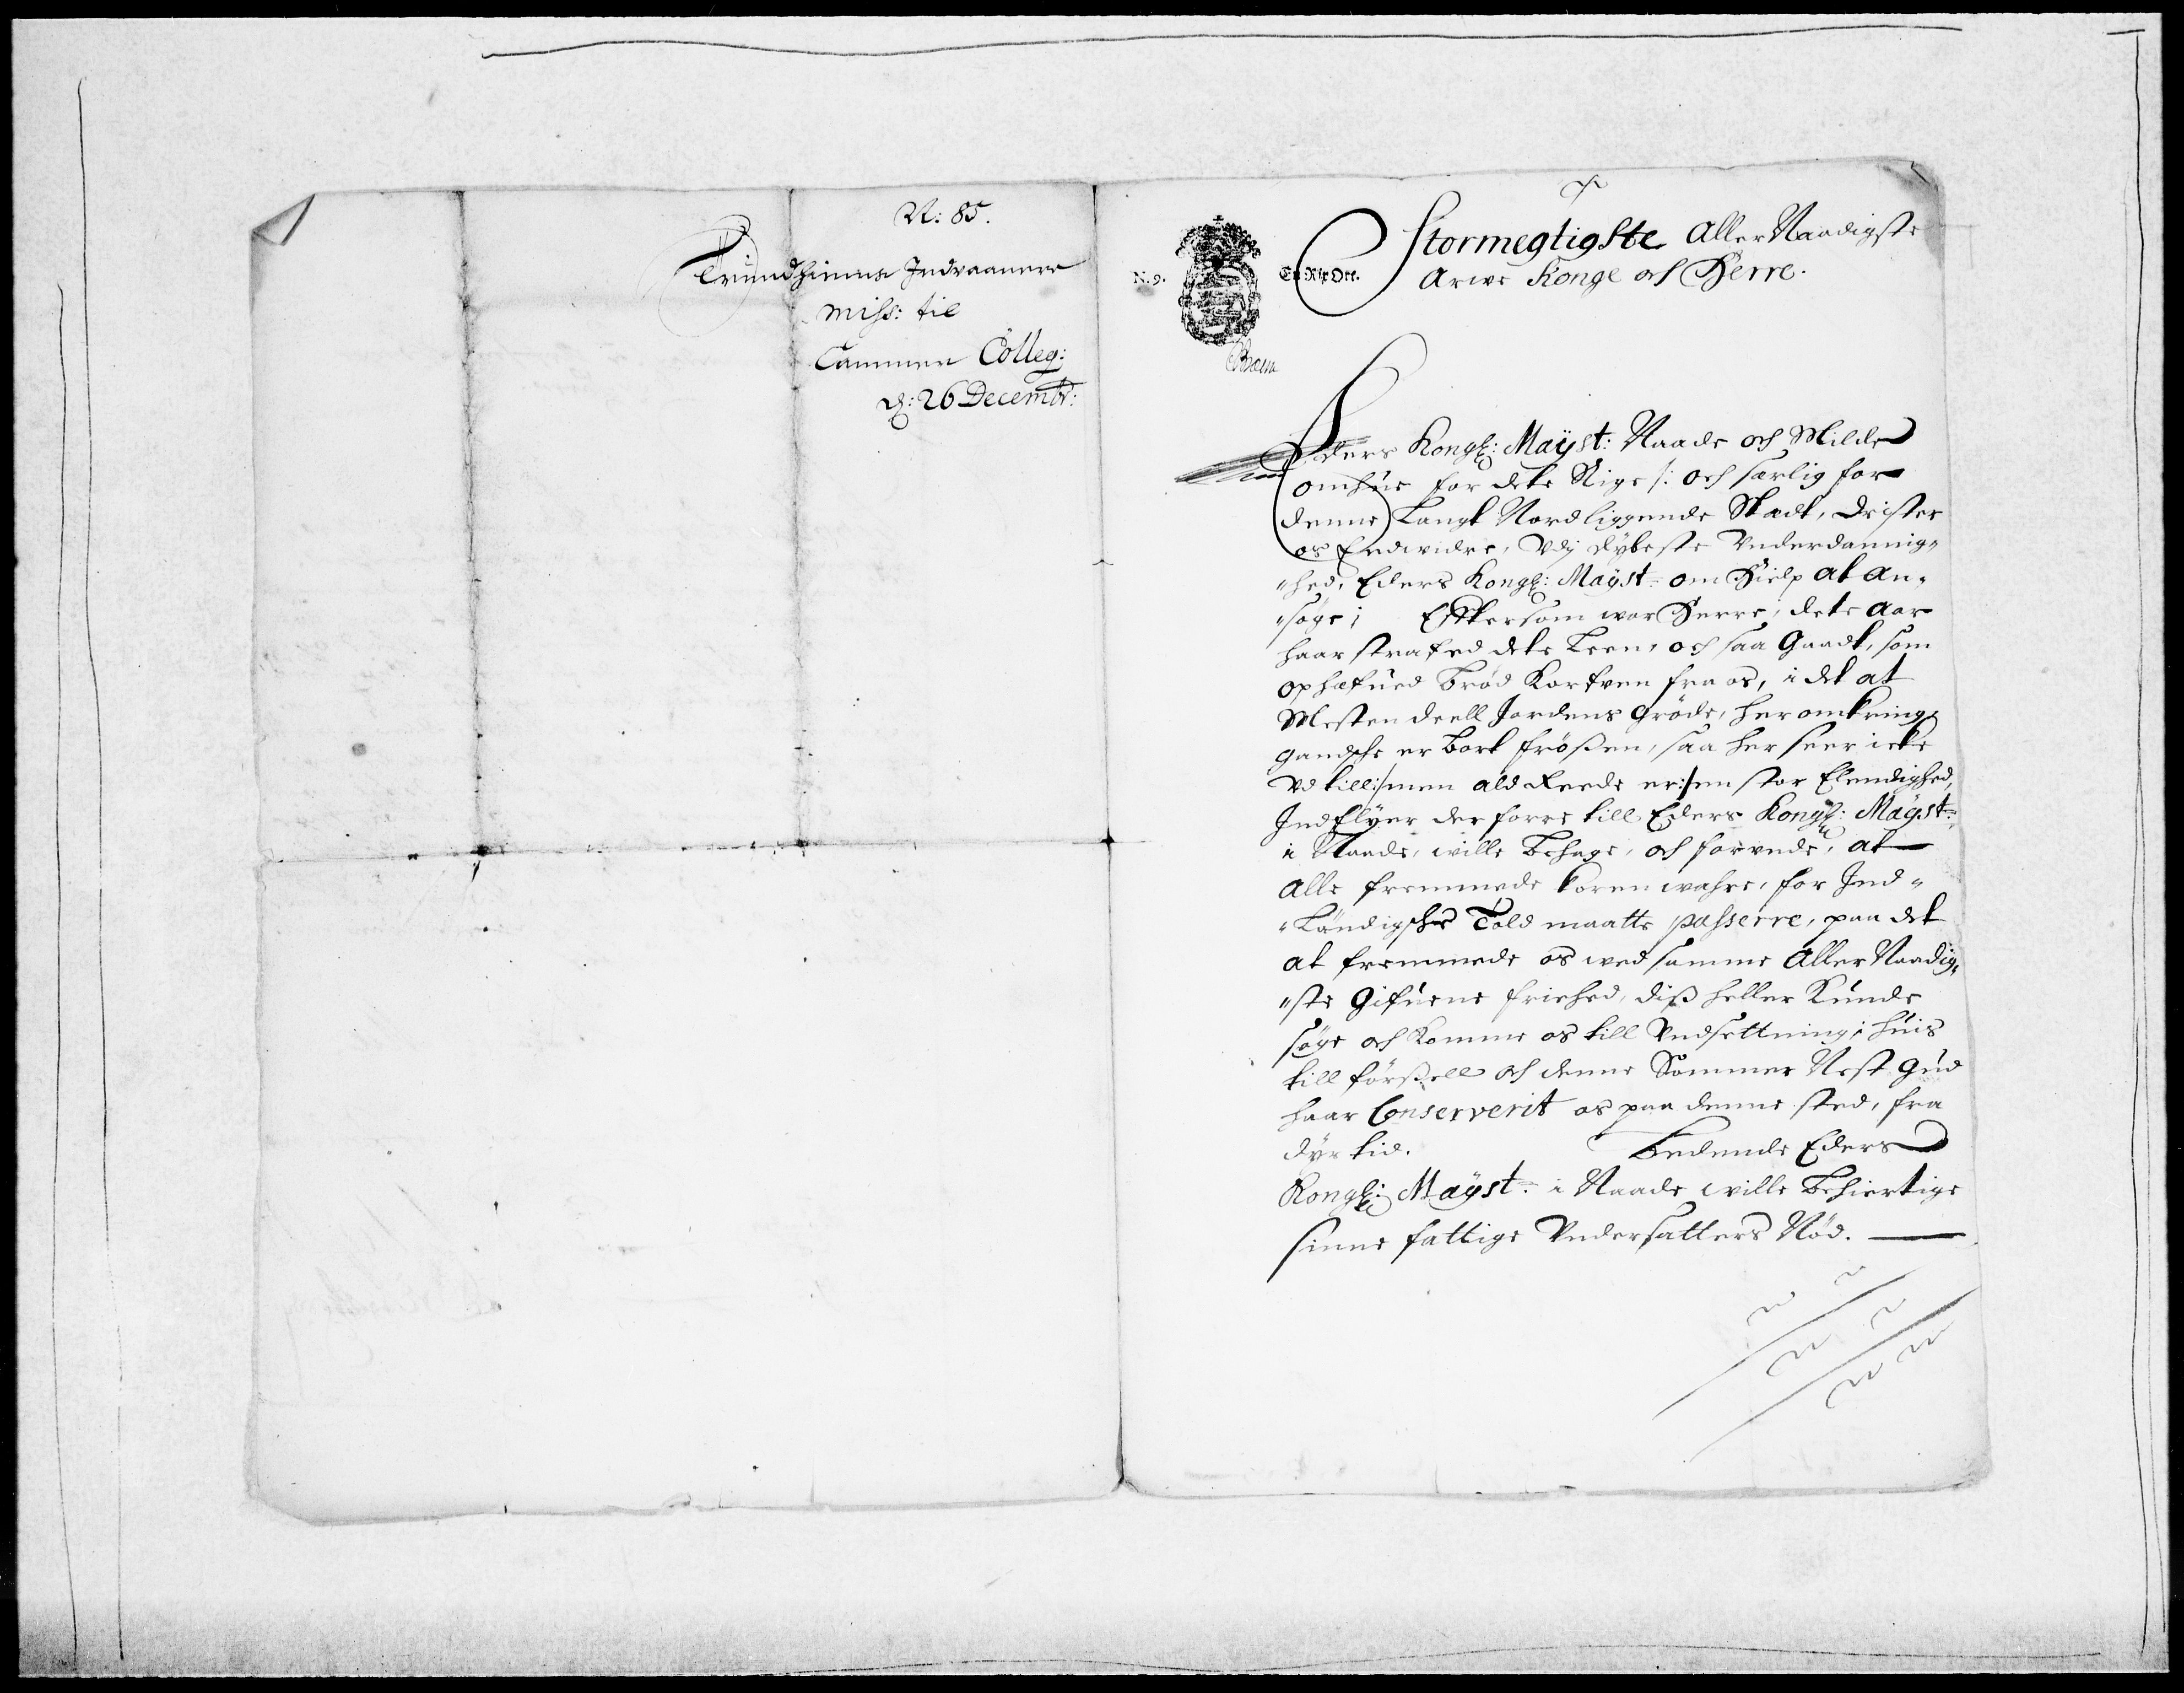 N: 85.
Trundhiems Indvaanere
Miss: til
Cammer Colleg:
d: 26 Decembr:
N. 9.
En Rix Ort.
Stormegtigste Aller Naadigste
Arwe Konge och Herre.
Eders Kongl: Maÿst: Naade och Milde
omhue for dete Rige /: och særlig for
denne Langt Nordliggende Stadt, drister
os Endwidre, Vdj dÿbeste Vnderdannig„
„hed, Eders Kongl: Maÿst: om Hielp at an„
„söge; Efftersom wor Herre, dete Aar
haar strafed dete Leen, och saa Gaadt, som
ophæfued brød Korfven fra os, i det at
Mesten deell Jordens Gröde, her omkring
gandsche er bort frößen, saa her seer icke
vd till:/ men ald Reede er :/ en stor Elendighed,
Indflÿer der forre till Eders Kongl: Maÿst:
i Naade, wille Behage, och forunde, at
Alle fremmede korn wahre, for Ind„
„Ländigsche Told maatte passerre, paa det
at fremmede os wed samme Aller Naadig„
„ste Gifuene friehed, diß heller Kunde
söge och Komme os till Vndsettning; huis
till förßell och denne Sommer Nest Gud
haar Conserverit os paa denne sted, fra
dÿr tid. Bedende Eders
Kongl: Maÿst: i Naade wille Behiertige
sinne fattige Vndersatters Nød.